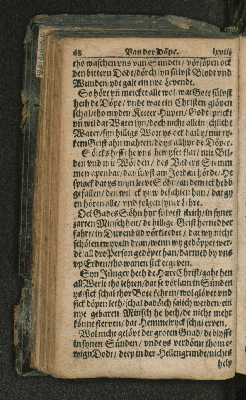 68 Van der Döpe. lxviij
tho waschen uns van Sünden / vorsöpen ock
den bittern Dodt / dörch syn sülvest Blodt und
Wunden / ydt galt ein nye Levendt.
So hört und mercket alle wol / wat Gott sülvest
heth de Döpe / unde wat ein Christen glöven
schal / tho myden Ketter Hupen / Godt spricht
und wil dat Water syn / doch nicht allein schlicht
Water / syn hillige Wort ys ock darby / mit ry-
kem Geist ahn mahten / de ys allhyr de Döpe.
Solcks hefft he uns bewyset klar / mit Bil-
den und mit Worden / des Vaders Stemm
men apenbar / dar sülvest am Jordan hörde / He
sprack dat ys myn leve Söhn / an dem ick hebb
gefallen / den wil ick yuw befahlen han / dat gy
en hören alle / und folgen syner Lehre.
Ock Gades Söhn hyr sülvest steith / in syner
zarten Minscheit / de hillige Geist hernedder
fahrt / in Duven bild vorkledet / dat wy nicht
schölen twyveln dran / wenn wy gedöppet wer-
den / all dre Person gedöpet han / darmed by uns
up Erden / tho wanen sick ergeven.
Syn Jünger heth de Here Christ / gaht hen
all Werlt tho lehren / dat se vorlarn in Sünden
ys / sick schal thor Bote kehren / wol glövet und
sick döpen leth / schal dadörch salich werden / ein
nye gebaren Minsch he heth / de nicht mehr
könne sterven / dat Hemmelryck schal erven.
Wol nicht gelövt der groten Gnad / de blyfft
in synen Sünden / und ys verdömt thom e-
wigen Dodt / deep in der Hellen grunde / nichts
help